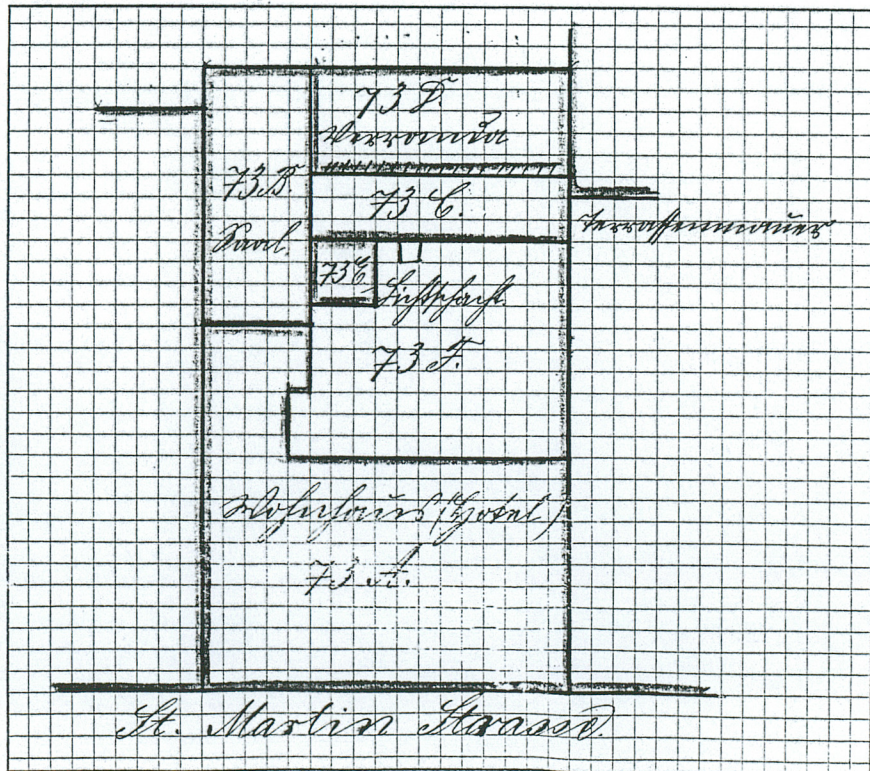 73 D.
Verranda
73 B.
Saal.
73 C.
Terrassenmauer
73 E.
Lichtschacht.
73 F.
Wohnhaus (Hotel)
73 A.
St. Martin Strasse.